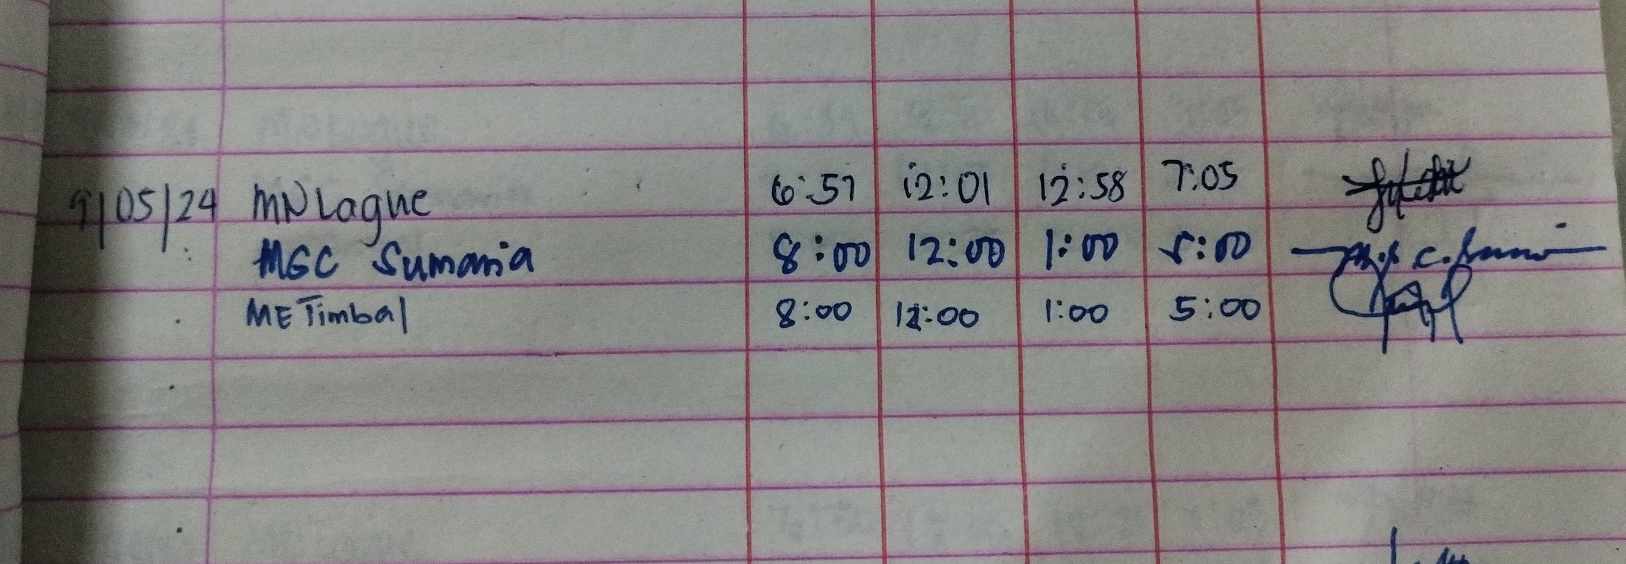 9/05/24 MNLague 6:57 12:01 12:58 7:05
MGC Sumania 8:00 12:00 1:00 5:00
METimbal 8:00 12:00 1:00 5:00